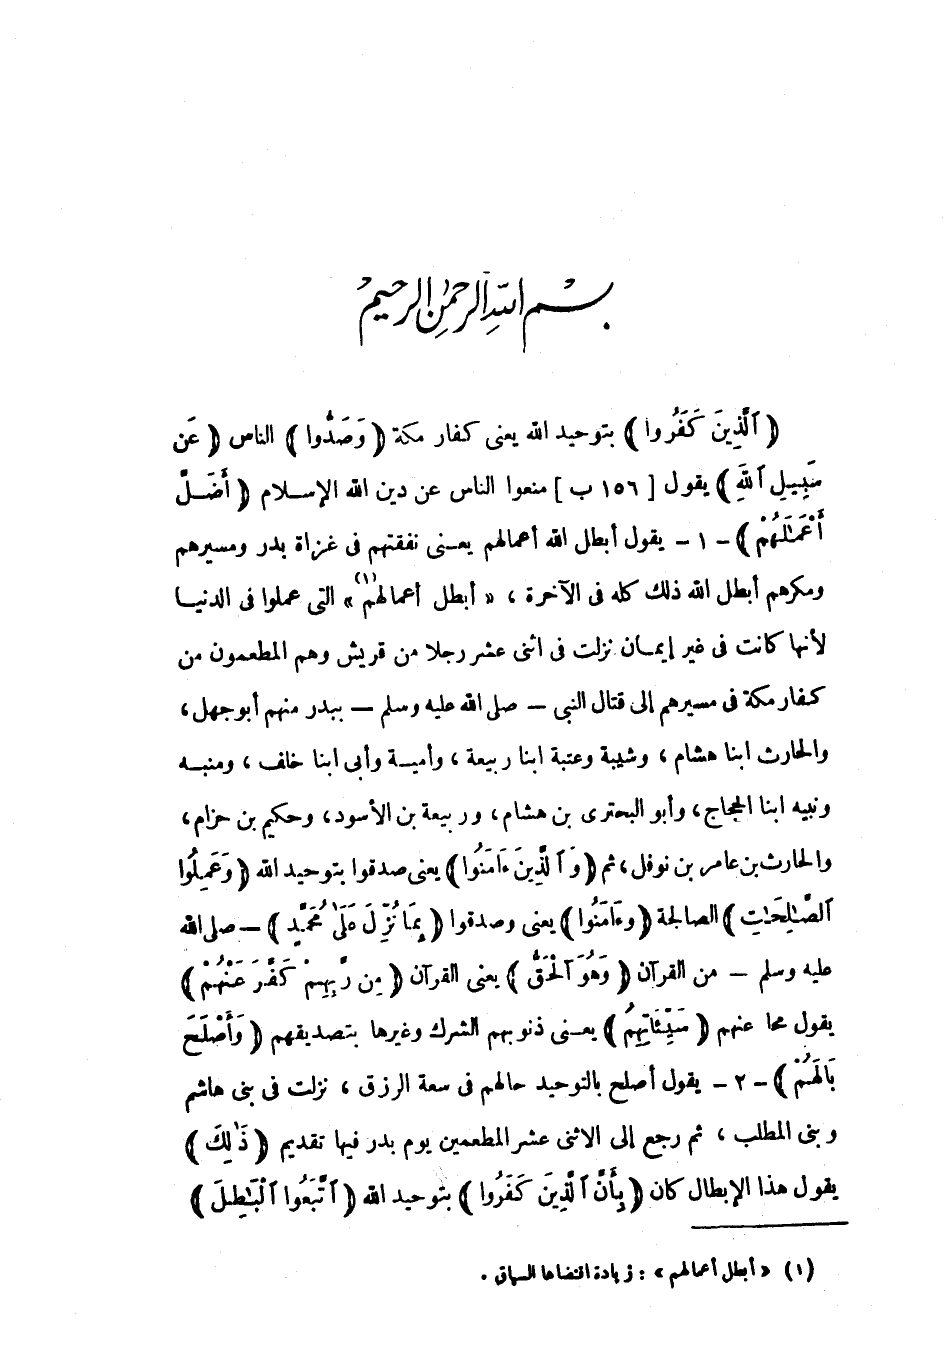 بسم الله الرحمن الرحيم
﴿ ٱلَّذِينَ كَفَرُوا ﴾ بتوحيد الله يعنى كفار مكة ﴿ وَصَدُّوا ﴾ الناس ﴿ عَن
سَبِيلِ ٱللَّهِ ﴾ يقول [ ١٥٦ ب ] منعوا الناس عن دين الله الإسلام ﴿ أَضَلَّ
أَعْمَـٰلَهُمْ ﴾ - ١ - يقول أبطل الله أعمالهم يعنى نفقتهم فى غزاة بدر ومسيرهم
ومكرهم أبطل الله ذلك كله فى الآخرة ، « أبطل أعمالهم(١) » التى عملوا فى الدنيا
لأنها كانت فى غير إيمان نزلت فى اثنى عشر رجلا من قريش وهم المطعمون من
كفار مكة فى مسيرهم إلى قتال النبى – صلى الله عليه وسلم – ببدر منهم أبو جهل ،
والحارث ابنا هشام ، وشيبة وعتبة ابنا ربيعة ، وأمية وأبى ابنا خلف ، ومنبه
ونبيه ابنا الحجاج ، وأبو البحترى بن هشام ، وربيعة بن الأسود ، وحكيم بن حزام ،
والحارث بن عامر بن نوفل ، ثم ﴿ وَٱلَّذِينَ ءَامَنُوا ﴾ يعنى صدقوا بتوحيد الله ﴿ وَعَمِلُوا
ٱلصَّـٰلِحَـٰتِ ﴾ الصالحة ﴿ وءَامَنُوا ﴾ يعنى وصدقوا ﴿ بِمَا نُزِّلَ عَلَىٰ مُحَمَّدٍ ﴾ – صلى الله
عليه وسلم – من القرآن ﴿ وَهُوَ ٱلْحَقُّ ﴾ يعنى القرآن ﴿ مِن رَّبِهِمْ كَفَّرَ عَنْهُمْ ﴾
يقول محا عنهم ﴿ سَيِّئَاتِهِمْ ﴾ يعنى ذنوبهم الشرك وغيرها بتصديقهم ﴿ وَأَصْلَحَ
بَالَهُمْ ﴾ - ٢ - يقول أصلح بالتوحيد حالهم فى سعة الرزق ، نزلت فى بنى هاشم
وبنى المطلب ، ثم رجع إلى الاثنى عشر المطعمين يوم بدر فيها تقديم ﴿ ذَٰلِكَ ﴾
يقول هذا الإبطال كان ﴿ بِأَنَّ ٱلَّذِينَ كَفَرُوا ﴾ بتوحيد الله ﴿ ٱتَّبَعُوا ٱلْبَـٰطِلَ ﴾
(١) « أبطل أعمالهم » : زيادة اقتضاها السياق .